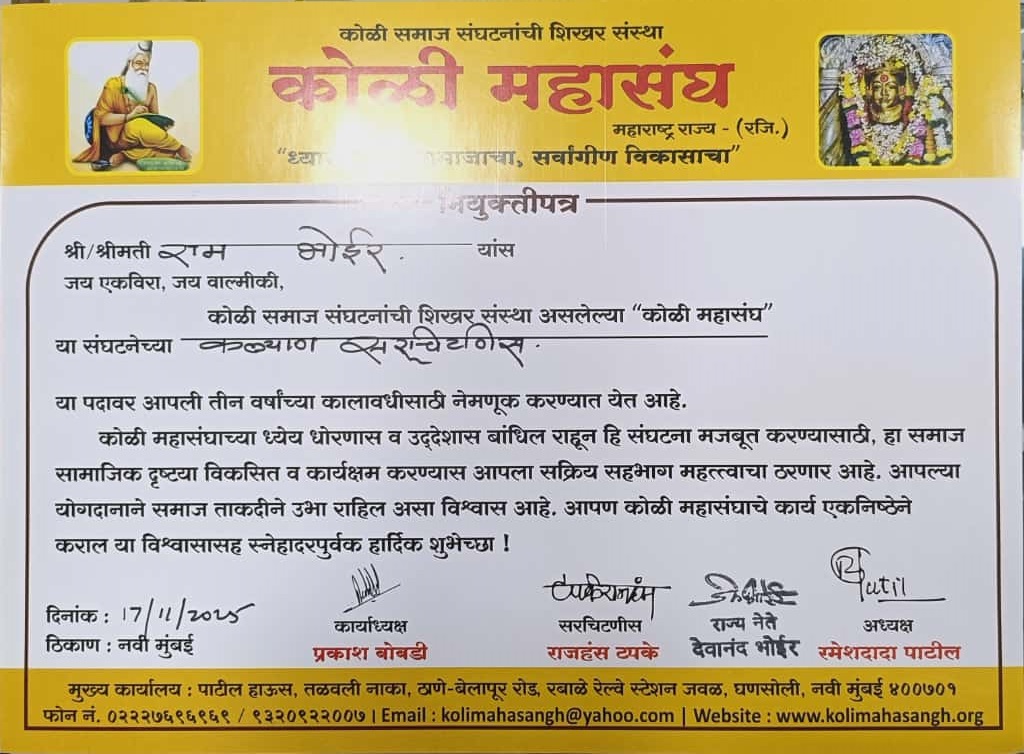 कोळी समाज संघटनांची शिखर संस्था
कोळी महासंघ
महाराष्ट्र राज्य - (रजि.)
समाजाचा, सर्वांगीण विकासाचा"
नियुक्तीपत्र
श्री/श्रीमती राम भोईर. यांस
जय एकविरा, जय वाल्मीकी,
कोळी समाज संघटनांची शिखर संस्था असलेल्या "कोळी महासंघ"
या संघटनेच्या कल्याण सरचिटणिस.
या पदावर आपली तीन वर्षाच्या कालावधीसाठी नेमणूक करण्यात येत आहे.
कोळी महासंघाच्या ध्येय धोरणास व उद्देशास बांधिल राहून हि संघटना मजबूत करण्यासाठी, हा समाज
सामाजिक दृष्टया विकसित व कार्यक्षम करण्यास आपला सक्रिय सहभाग महत्त्वाचा ठरणार आहे. आपल्या
योगदानाने समाज ताकदीने उभा राहिल असा विश्वास आहे. आपण कोळी महासंघाचे कार्य एकनिष्ठेने
कराल या विश्वासासह स्नेहादरपुर्वक हार्दिक शुभेच्छा !
Patil
दिनांक : 17/11/2025
कार्याध्यक्ष सरचिटणीस राज्य नेते अध्यक्ष
ठिकाण : नवी मुंबई
प्रकाश बोबडी राजहंस टपके देवानंद भोईर रमेशदादा पाटील
मुख्य कार्यालय : पाटील हाऊस, तळवली नाका, ठाणे-बेलापूर रोड, रबाळे रेल्वे स्टेशन जवळ, घणसोली, नवी मुंबई ४००७०१
फोन नं. ०२२२७६९६९६९ / ९३२०९२२००७ | Email : kolimahasangh@yahoo.com | Website : www.kolimahasangh.org